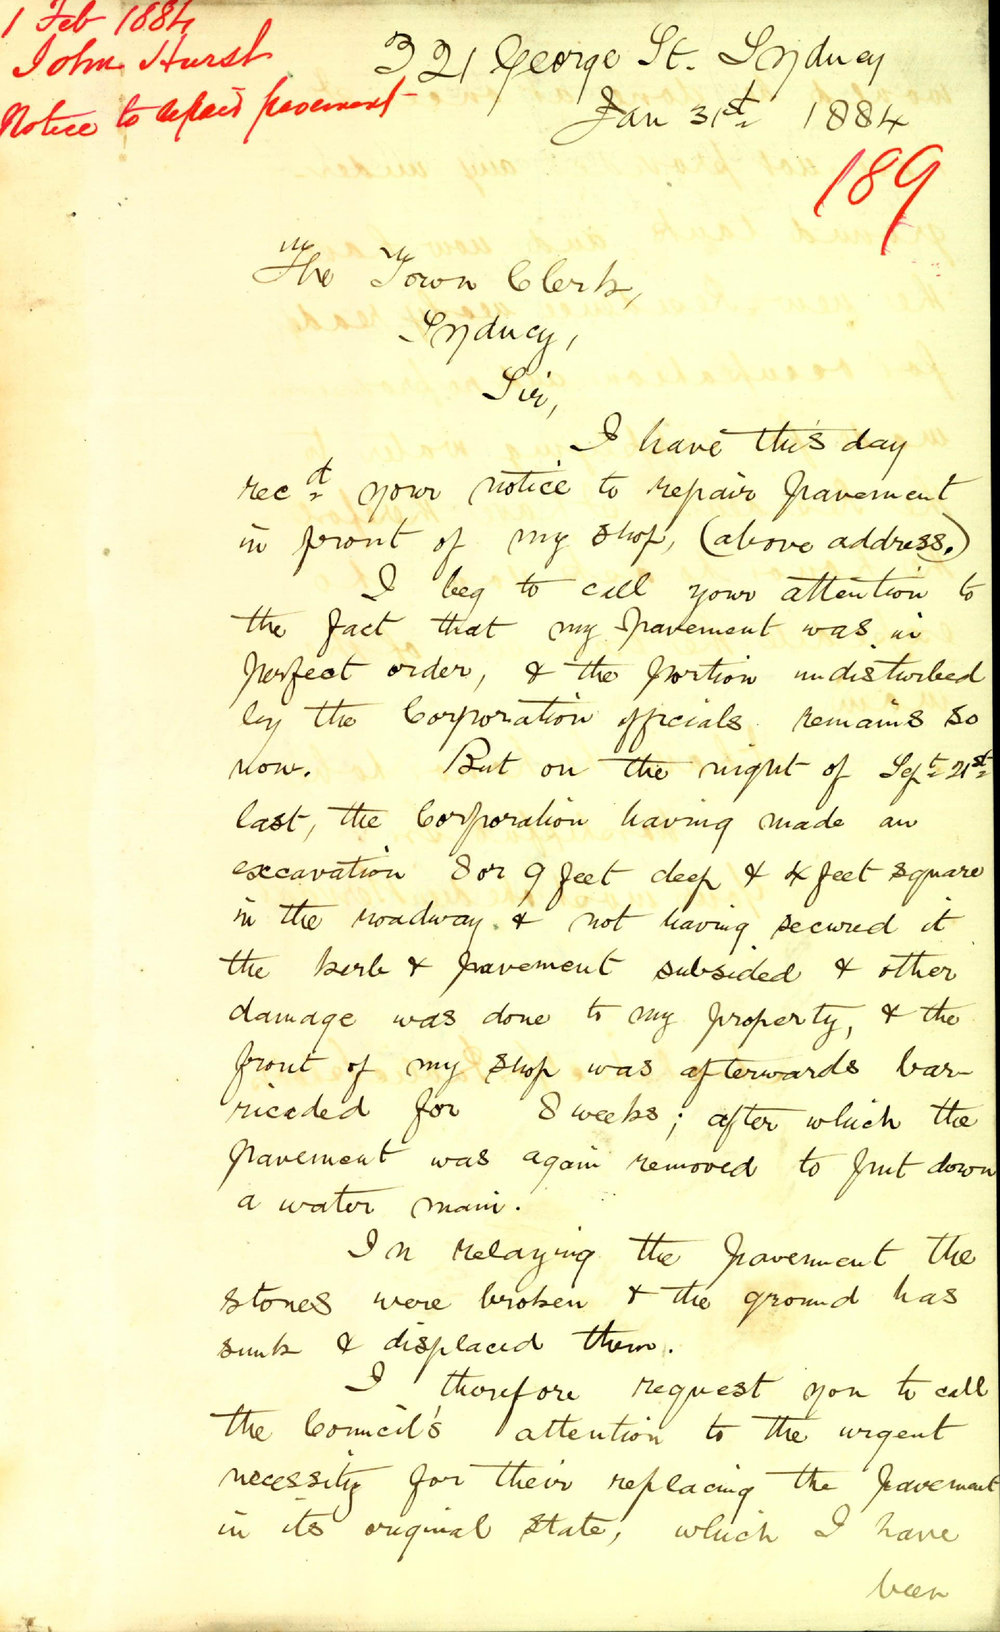 1 Feb 1884
John Hurst
Notice to repair pavement
321 George St. Sydney
Jan 31st 1884
189
The Town Clerk,
Sydney,
Sir,
I have this day
recd your notice to repair pavement
in front of my shop, (above address.)
I beg to call your attention to
the fact that my pavement was in
perfect order, & the portion undisturbed
by the Corporation officials remains so
now. But on the night of Sept 21st
last, the Corporation having made an
excavation 8 or 9 feet deep & 4 feet square
in the roadway & not having secured it
the kerb & pavement subsided & other
damage was done to my property, & the
front of my shop was afterwards bar-
ricaded for 8 weeks; after which the
pavement was again removed to put down
a water main.
In relaying the pavement the
stones were broken & the ground has
sunk & displaced them.
I therefore request you to call
the Council's attention to the urgent
necessity for their replacing the pavement
in its original state, which I have
been